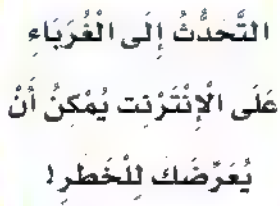 التَّحَدُّثُ إِلَى الْغُرَبَاءِ
عَلَى الْإِنْتَرْنِت يُمْكِنُ أَنْ
يُعَرِّضَكَ لِلْخَطَرِ!